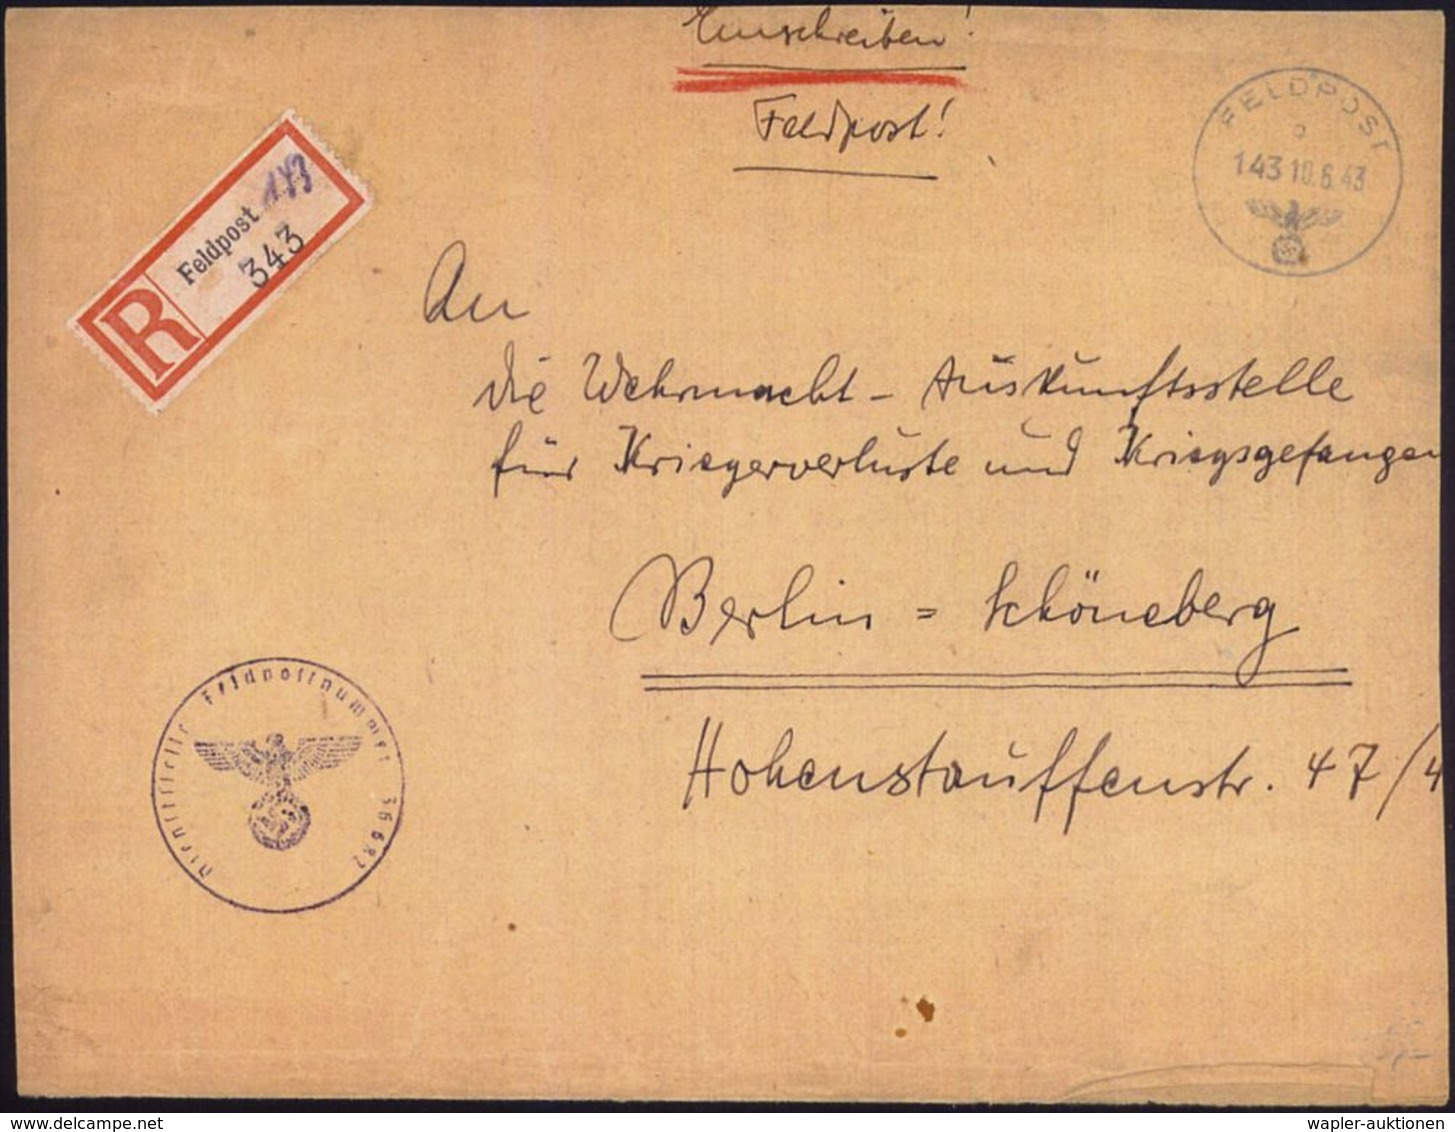 Einschreiben!
Feldpost!
FELDPOST
143 10.6.43
Feldpost 143
343
R
An
die Wehrmacht - Auskunftsstelle
für Kriegerverluste und Kriegsgefangen
Berlin = Schöneberg
Hohenstauffenstr. 47/4
Dienststelle Feldpostnummer 36682
wapler-auktionen